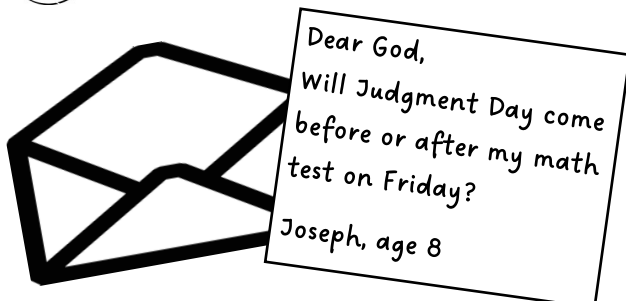 Dear God,
Will Judgment Day come
before or after my math
test on Friday?
Joseph, age 8